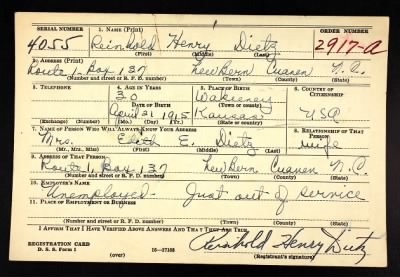 SERIAL NUMBER 1. NAME (Print) ORDER NUMBER
4055 Reinhold Henry Dietz 2917-A
(First) (Middle) (Last)
2. ADDRESS (Print)
Route 1, Box 137 New Bern Craven N.C.
(Number and street or R. F. D. number) (Town) (County) (State)
3. TELEPHONE 4. AGE IN YEARS 5. PLACE OF BIRTH 6. COUNTRY OF CITIZENSHIP
30 Wakeeney
DATE OF BIRTH (Town or county)
April 21 1915 Kansas USA
(Exchange) (Number) (Mo.) (Day) (Yr.) (State or country)
7. NAME OF PERSON WHO WILL ALWAYS KNOW YOUR ADDRESS 8. RELATIONSHIP OF THAT PERSON
Mrs. Edith E. Dietz wife
(Mr., Mrs., Miss) (First) (Middle) (Last)
9. ADDRESS OF THAT PERSON
Route 1, Box 137 New Bern Craven N.C.
(Number and street or R. F. D. number) (Town) (County) (State)
10. EMPLOYER'S NAME
Unemployed Just out of service
11. PLACE OF EMPLOYMENT OR BUSINESS
(Number and street or R. F. D. number) (Town) (County) (State)
I AFFIRM THAT I HAVE VERIFIED ABOVE ANSWERS AND THAT THEY ARE TRUE.
REGISTRATION CARD
D. S. S. Form 1 (over) Reinhold Henry Dietz
(Registrant's signature)